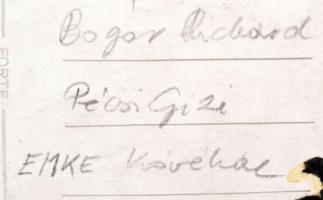 Bogár Richard
Pécsi Gizi
EMKE Kávéház
FORTE